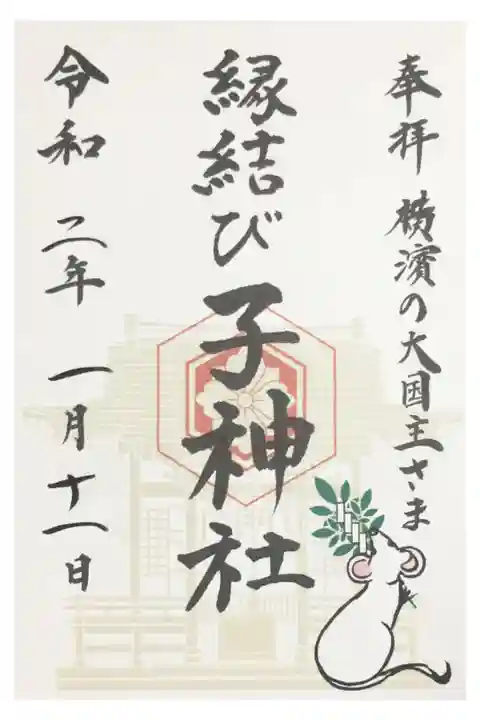 奉拝 横濱の大国主さま
縁結び子神社
令和 二年 一月十一日